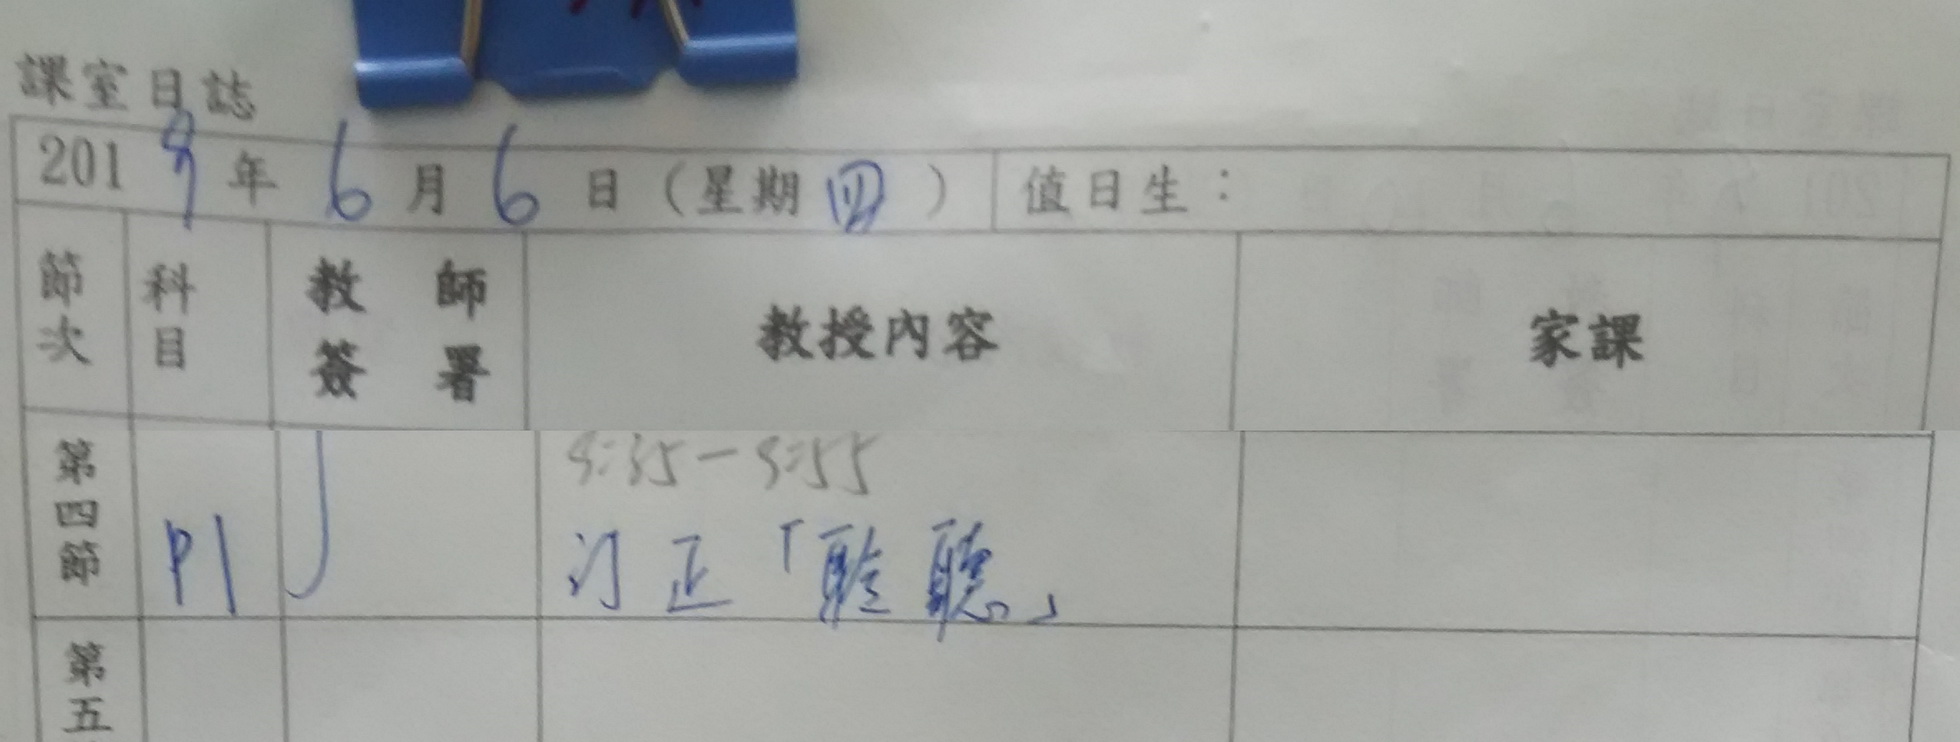 課室日誌
2019年6月6日（星期四） 值日生：
節次 科目 教師簽署 教授內容 家課
第四節 P1
訂正「聆聽」
第五